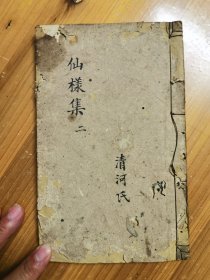 仙樣集 二
清河氏